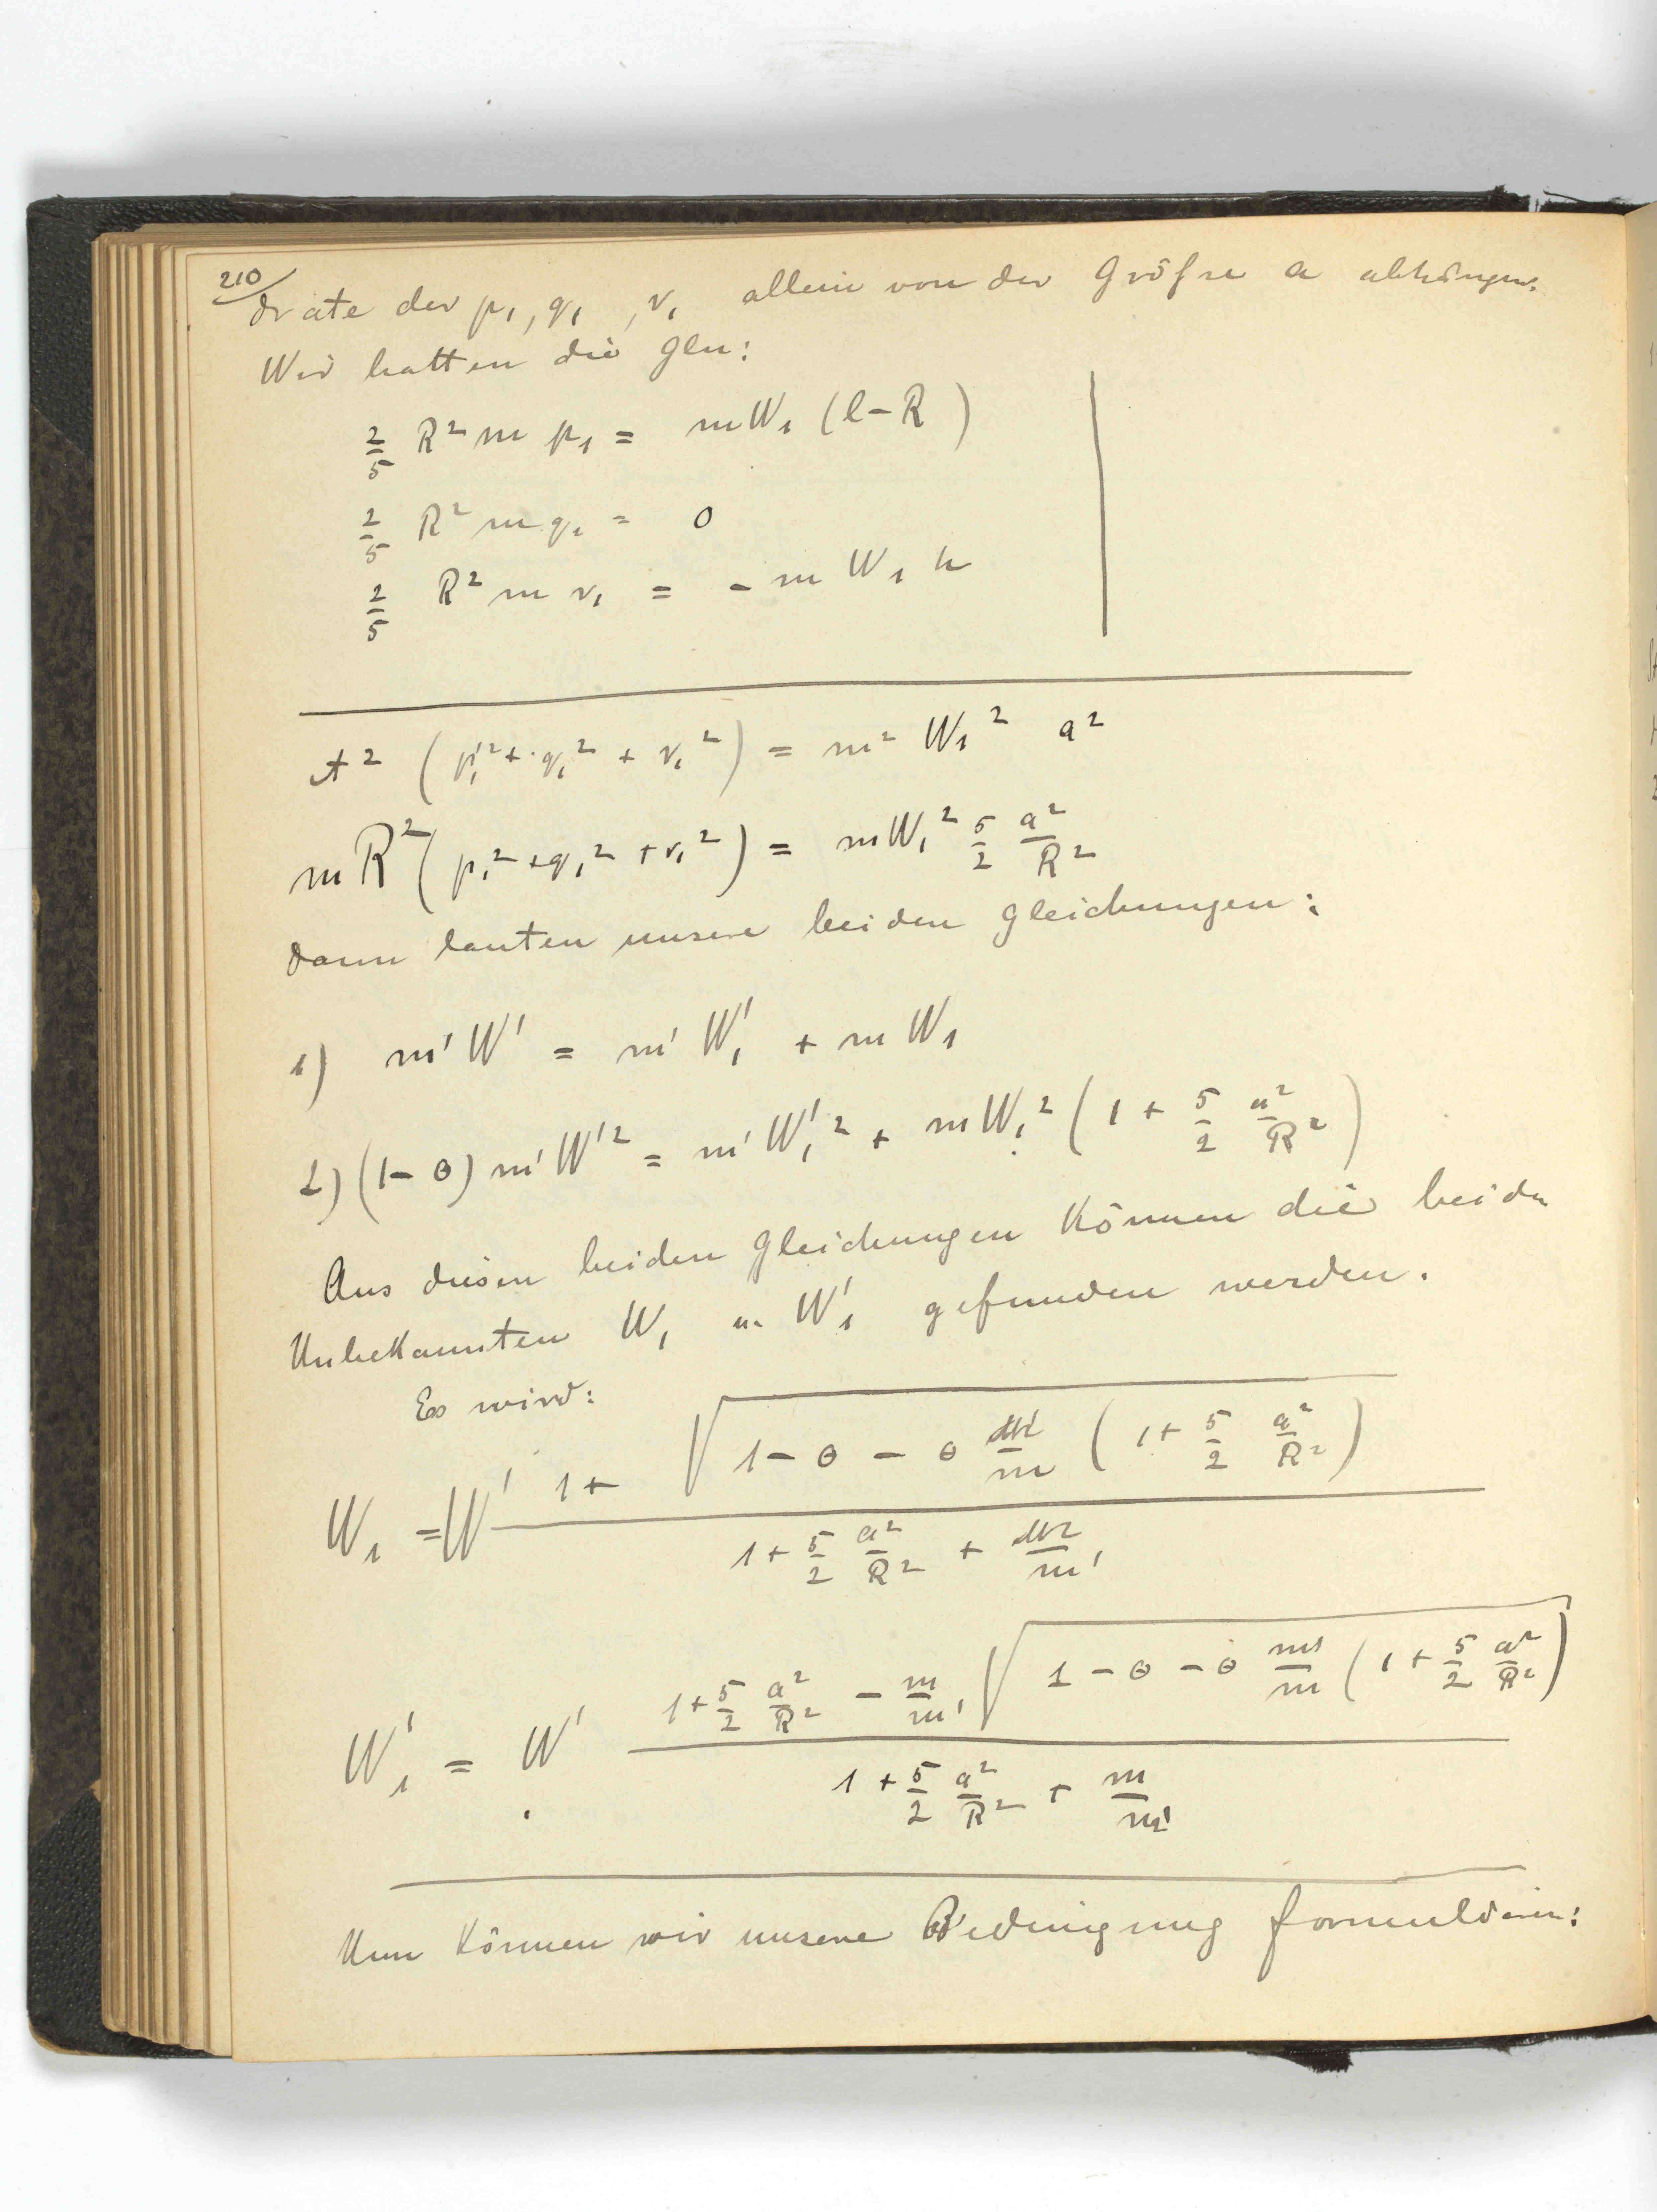 210
drate der p₁, q₁, r₁ allein von der Größe a abhängen.
Wir hatten die Gln:
2/5 R² m p₁ = m W₁ (l - R)
2/5 R² m q₁ = 0
2/5 R² m r₁ = - m W₁ h
A² (p₁² + q₁² + r₁²) = m² W₁² a²
m R² (p₁² + q₁² + r₁²) = m W₁² 5/2 a²/R²
Dann lauten unsere beiden Gleichungen:
1) m' W' = m' W₁' + m W₁
2) (1 - θ) m' W'² = m' W₁'² + m W₁² (1 + 5/2 a²/R²)
Aus diesen beiden Gleichungen können die beiden
Unbekannten W₁ u. W₁' gefunden werden.
Es wird:
W₁ = W' (1 + √(1 - θ - θ m'/m (1 + 5/2 a²/R²))) / (1 + 5/2 a²/R² + m/m')
W₁' = W' (1 + 5/2 a²/R² - m/m' √(1 - θ - θ m'/m (1 + 5/2 a²/R²))) / (1 + 5/2 a²/R² + m/m')
Nun können wir unsere Bedingung formulieren: